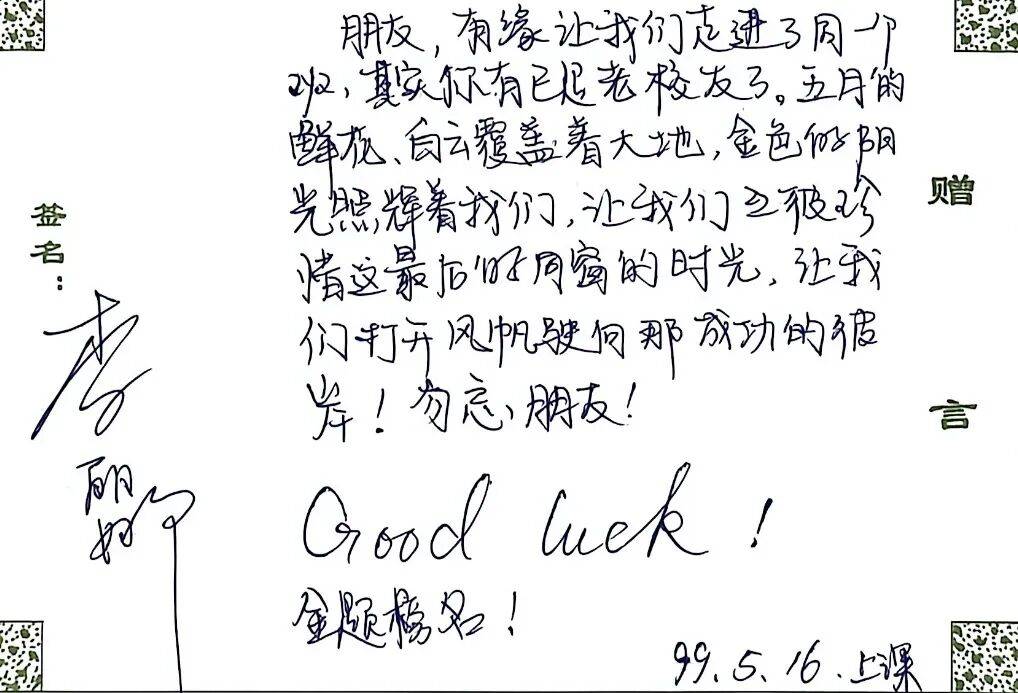 朋友,有缘让我们走进了同一个
班、其实你有已是老校友了。五月的
鲜花、白云覆盖着大地,金色的阳
光照辉着我们,让我们互彼珍
惜这最后的同窗的时光,让我
们打开风帆驶向那成功的彼
岸!勿忘、朋友!
Good luck!
金题榜名!
99.5.16.上课
赠言
签名:
李